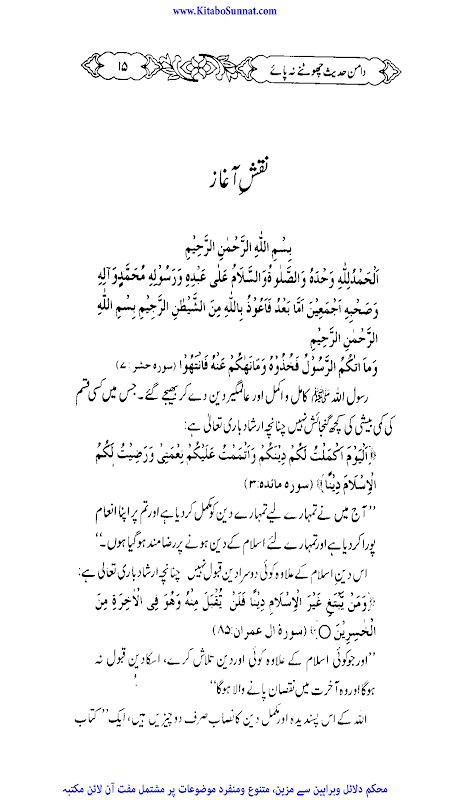 www.KitaboSunnat.com
دامن حدیث چھوٹنے نہ پائے
۱۵
نقشِ آغاز
بِسْمِ اللّٰهِ الرَّحْمٰنِ الرَّحِيْمِ
اَلْحَمْدُلِلّٰهِ وَحْدَهٗ وَالصَّلٰوةُ وَالسَّلَامُ عَلٰى عَبْدِهٖ وَرَسُوْلِهٖ مُحَمَّدٍ وَّاٰلِهٖ
وَصَحْبِهٖ اَجْمَعِيْنَ اَمَّا بَعْدُ فَاَعُوْذُ بِاللّٰهِ مِنَ الشَّيْطٰنِ الرَّجِيْمِ بِسْمِ اللّٰهِ
الرَّحْمٰنِ الرَّحِيْمِ
وَمَا اٰتٰكُمُ الرَّسُوْلُ فَخُذُوْهُ وَمَانَهٰكُمْ عَنْهُ فَانْتَهُوْا (سورہ حشر:۷)
رسول اللہ ﷺ کامل و اکمل اور عالمگیر دین دے کر بھیجے گئے۔ جس میں کسی قسم
کی کمی بیشی کی کچھ گنجائش نہیں چنانچہ ارشاد باری تعالیٰ ہے:
﴿اَلْيَوْمَ اَكْمَلْتُ لَكُمْ دِيْنَكُمْ وَاَتْمَمْتُ عَلَيْكُمْ نِعْمَتِيْ وَرَضِيْتُ لَكُمُ
الْاِسْلَامَ دِيْنًا﴾ (سورہ مائدہ:۳)
’’آج میں نے تمہارے لیے تمہارے دین کو مکمل کر دیا ہے اور تم پر اپنا انعام
پورا کر دیا ہے اور تمہارے لئے اسلام کے دین ہونے پر رضامند ہو گیا ہوں۔‘‘
اس دین اسلام کے علاوہ کوئی دوسرا دین قبول نہیں چنانچہ ارشاد باری تعالیٰ ہے:
﴿وَمَنْ يَّبْتَغِ غَيْرَ الْاِسْلَامِ دِيْنًا فَلَنْ يُّقْبَلَ مِنْهُ وَهُوَ فِى الْاٰخِرَةِ مِنَ
الْخٰسِرِيْنَ ○﴾ (سورۃ ال عمران:۸۵)
’’اور جو کوئی اسلام کے علاوہ کوئی اور دین تلاش کرے، اسکا دین قبول نہ
ہو گا اور وہ آخرت میں نقصان پانے والا ہو گا‘‘
اللہ کے اس پسندیدہ اور مکمل دین کا نصاب صرف دو چیزیں ہیں، ایک ’’کتاب
محکم دلائل وبراہین سے مزین، متنوع ومنفرد موضوعات پر مشتمل مفت آن لائن مکتبہ